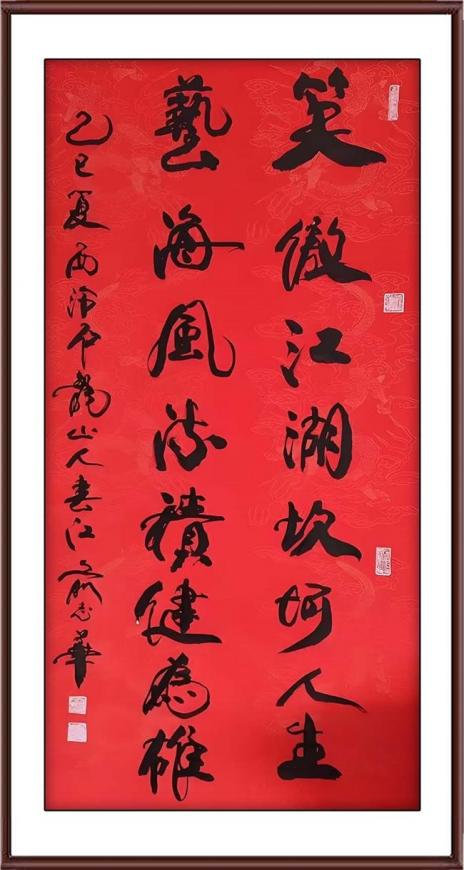 笑傲江湖坎坷人生
藝海風流積健為雄
乙巳夏西泠龍山人春江俞志華